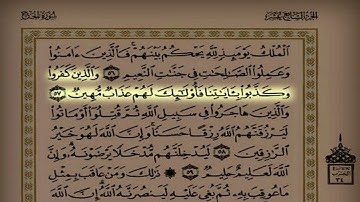 الجزء السابع عشر
سورة الحج
الْمُلْكُ يَوْمَئِذٍ لِلَّهِ يَحْكُمُ بَيْنَهُمْ فَالَّذِينَ ءَامَنُوا
وَعَمِلُوا الصَّٰلِحَٰتِ فِي جَنَّٰتِ النَّعِيمِ ٥٦ وَالَّذِينَ كَفَرُوا
وَكَذَّبُوا بِـَٔايَٰتِنَا فَأُولَٰئِكَ لَهُمْ عَذَابٌ مُهِينٌ ٥٧
وَالَّذِينَ هَاجَرُوا فِي سَبِيلِ اللَّهِ ثُمَّ قُتِلُوا أَوْ مَاتُوا
لَيَرْزُقَنَّهُمُ اللَّهُ رِزْقًا حَسَنًا وَإِنَّ اللَّهَ لَهُوَ خَيْرُ
الرَّٰزِقِينَ ٥٨ لَيُدْخِلَنَّهُمْ مُدْخَلًا يَرْضَوْنَهُ وَإِنَّ
اللَّهَ لَعَلِيمٌ حَلِيمٌ ٥٩ ذَٰلِكَ وَمَنْ عَاقَبَ بِمِثْلِ
مَا عُوقِبَ بِهِ ثُمَّ بُغِيَ عَلَيْهِ لَيَنْصُرَنَّهُ اللَّهُ إِنَّ اللَّهَ
الحزب
٣٤